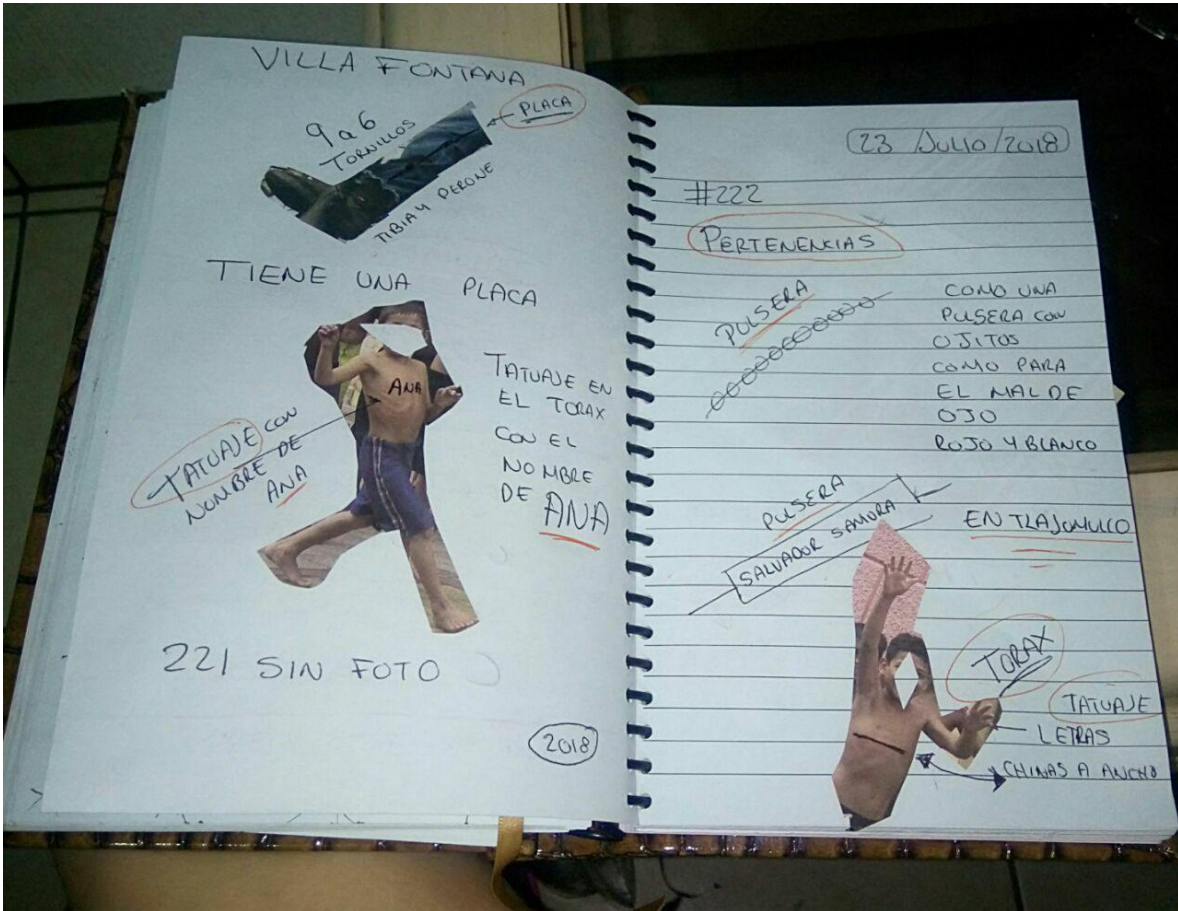 VILLA FONTANA
PLACA
9 a 6
TORNILLOS
TIBIA Y PERONE
TIENE UNA PLACA
ANA
TATUAJE CON
NOMBRE DE
ANA
TATUAJE EN
EL TORAX
CON EL
NOMBRE
DE ANA
221 SIN FOTO
2018
23 /JULIO/2018
#222
PERTENENCIAS
PULSERA
COMO UNA
PULSERA CON
OJITOS
COMO PARA
EL MAL DE
OJO
ROJO Y BLANCO
PULSERA
SALVADOR SAMORA
EN TLAJOMULCO
TORAX
TATUAJE
LETRAS
CHINAS A ANCHO